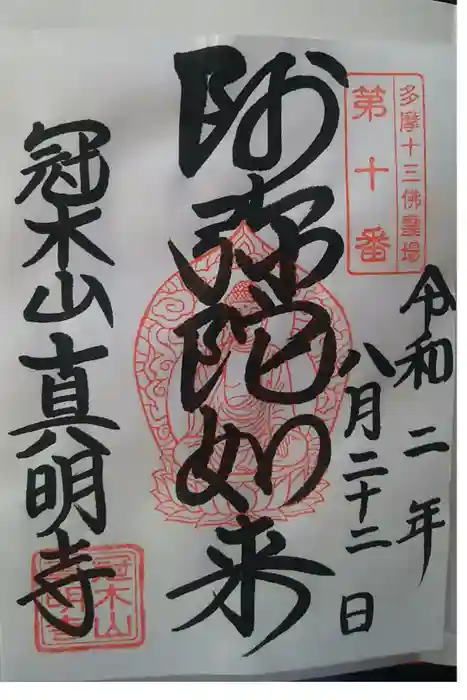 多摩十三佛霊場
第十番
令和二年
八月二十二日
阿弥陀如来
冠木山真明寺
冠木山
真明寺